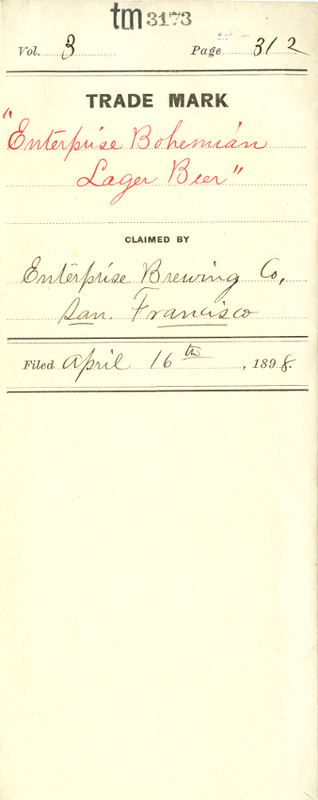 tm 3173
Vol. 3 Page 312
TRADE MARK
"Enterprise Bohemian
Lager Beer"
CLAIMED BY
Enterprise Brewing Co,
San. Francisco
Filed April 16th, 1898.